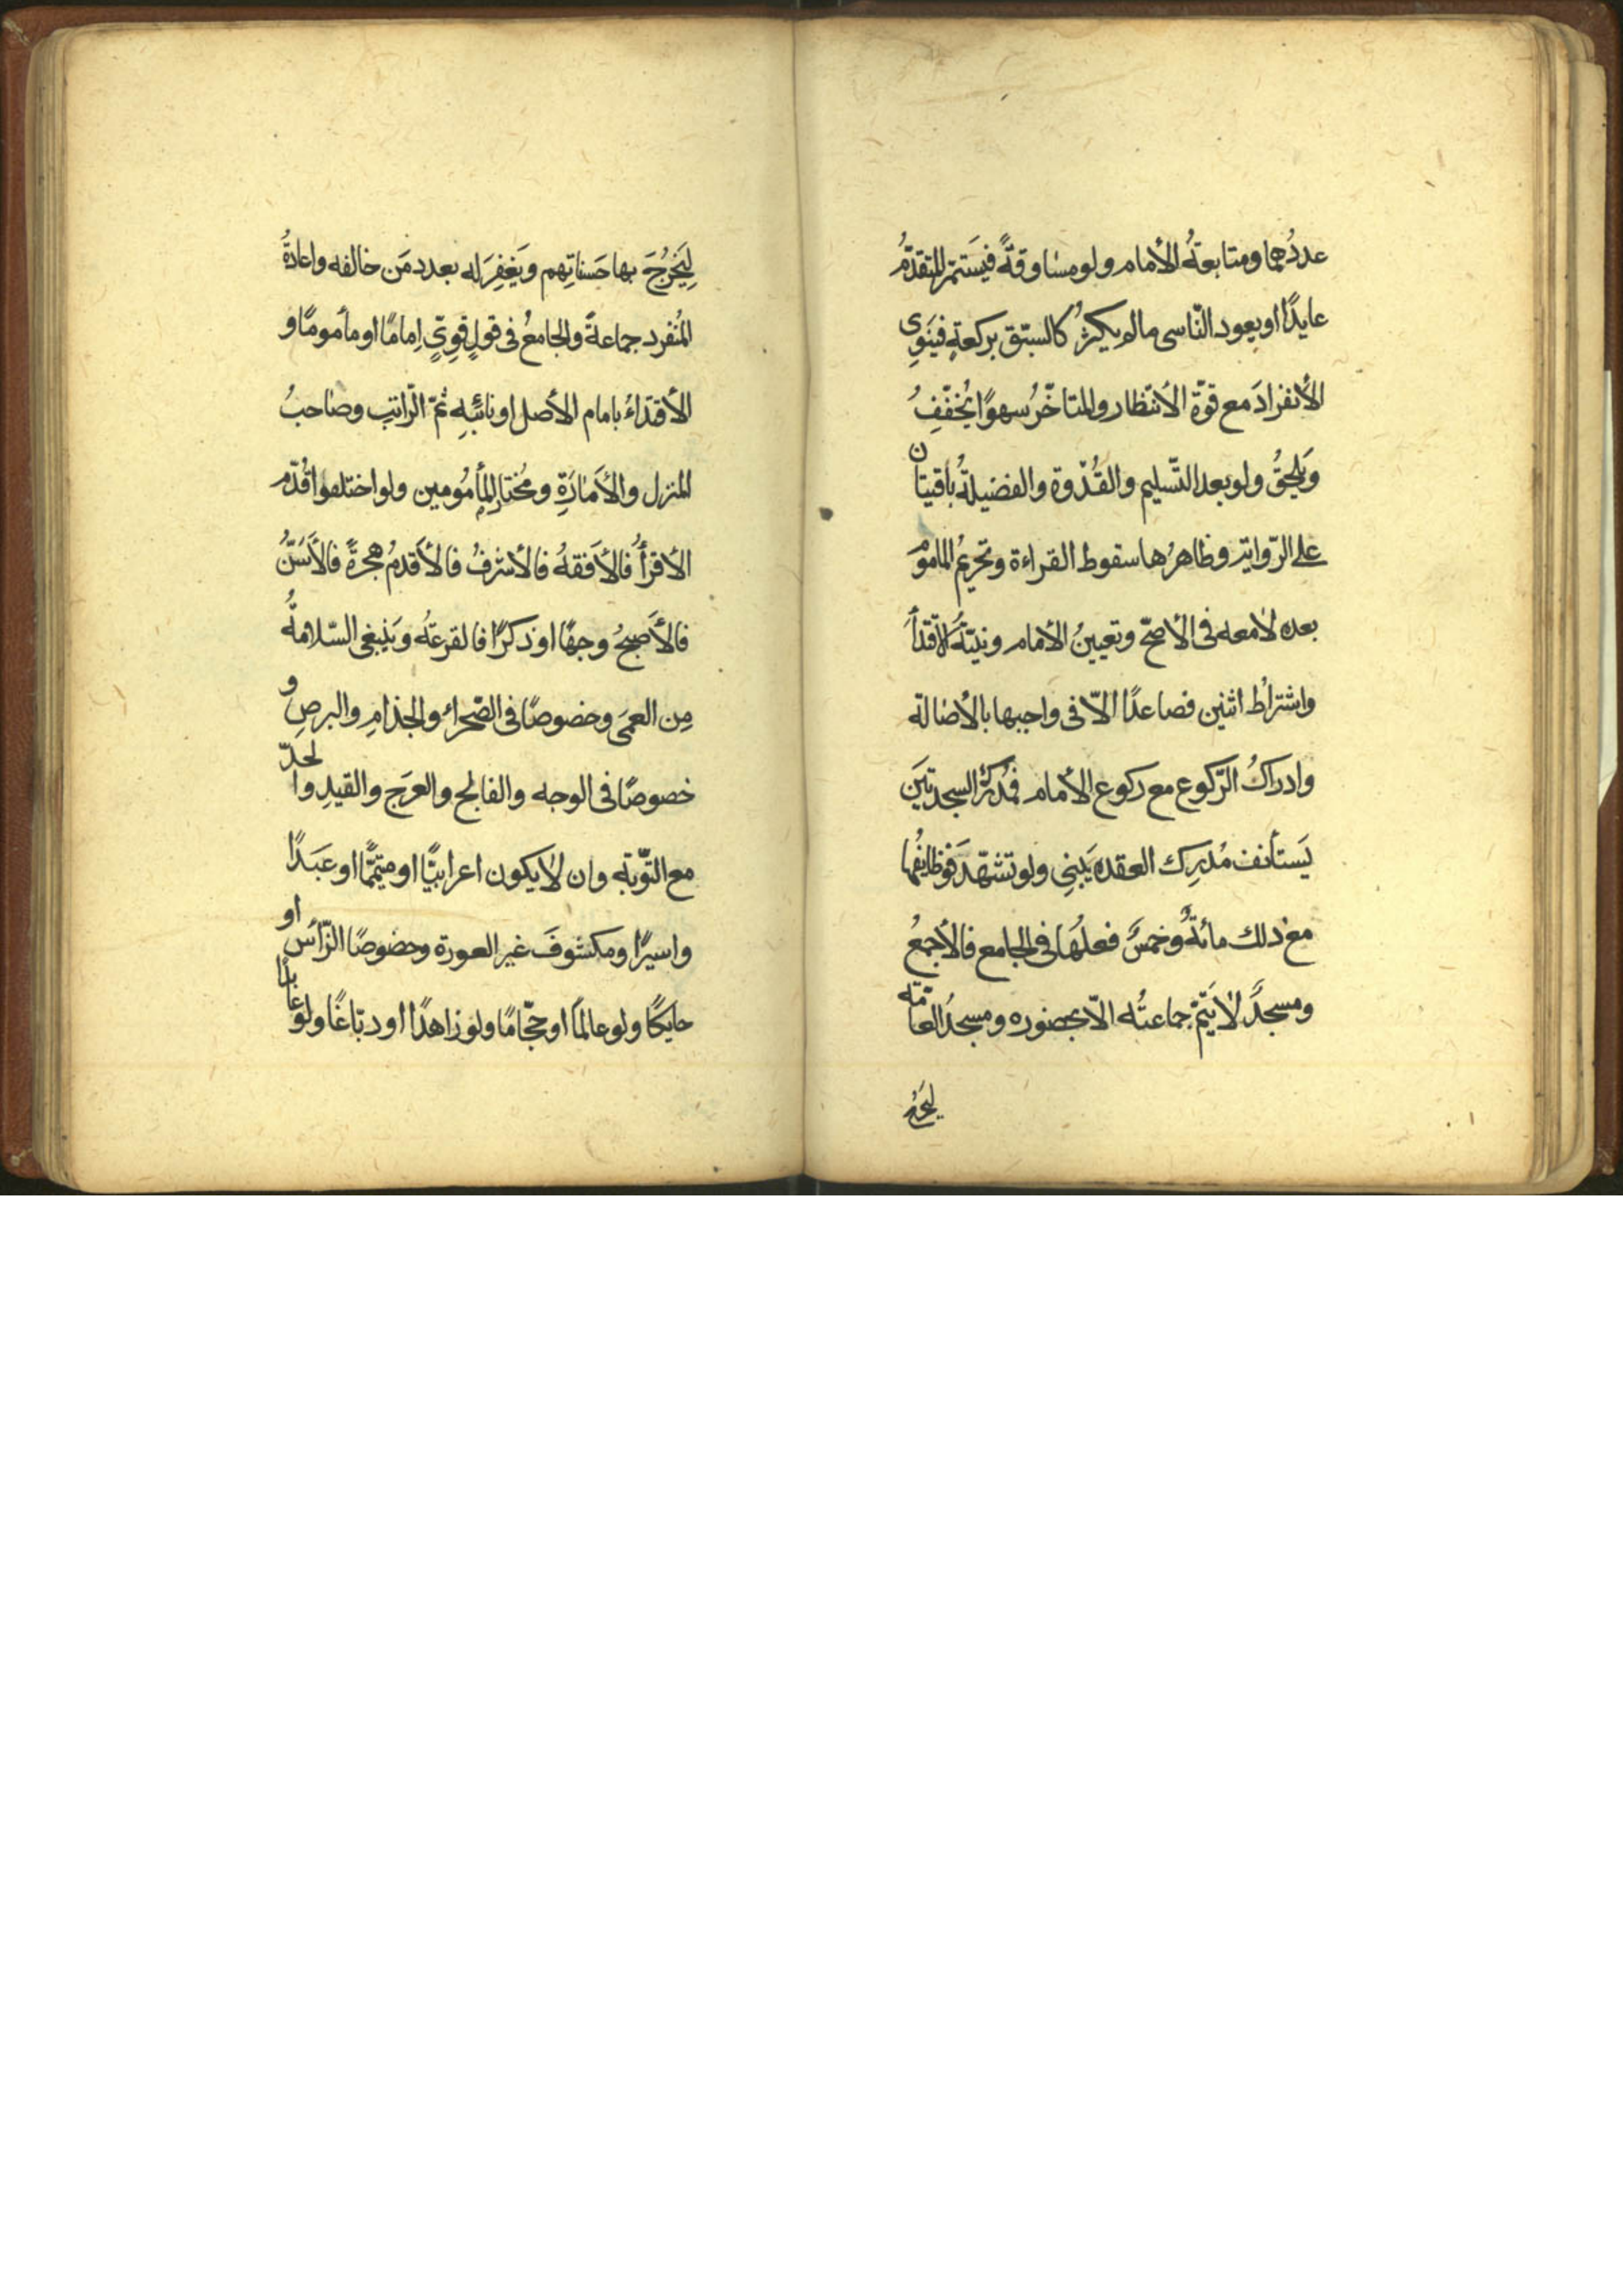 عددُهما ومتابعةُ الأمام ولو مساوقةً فيَستمرّ المتقدّمُ
عايدًا او يعود النّاسى مالم يكثرُ كالسبّق بركعةٍ فيَنوِى
الأنفرادَ مع قوّة الأنتظار والمتاخّرُ سهوًا يُخفّفُ
وَيلحقُ ولو بعد التّسليم والقُدّوة والفضيلةُ باقيتان
على الرّواية وظاهرُها سقوط القراءة وتحريمُ الماموم
بعده لامعه فى الأصحّ وتعيينُ الأمام ونيّتةُ الأقتدأَ
واشتراطُ اثنين فصاعدًا الّا فى واجبها بالأصالة
وادراكُ الرّكوع مع ركوع الأمام فمُدركُ السجدتيَن
يَستأنف مُدرِك العقده يَبنِى ولو تشهّدَ فوظايفُها
مع ذلك مائةٌ وخمسٌ فعلُها فى الجامع فالأجمعُ
ومسجدٌ لايَتمّ جماعتُه الّا بحضوره ومسجدُ العامّة
ليَخرُ
لِيَخرُجَ بها حَسناتِهم وَيَغفِرَ له بعدد مَن خالفه واعادةُ
المُنفرد جماعةً والجامعُ فى قولٍ قوِىّ اِمامًا او مأمومًا و
الأقتداءُ بامام الأصل او نائبِهِ ثمّ الرّاتب وصاحبُ
المنزل والأمارَةِ ومُختارِ المأمُومين ولو اختلفوا قُدّم
الأقرأُ فالأفقهُ فالأشرفُ فالأقدمُ هجرةً فالأسَنُّ
فالأَصبحُ وجهًا او ذكرًا فالقرعتُه وَيَنبغى السّلامةُ
مِن العمَى وخصوصًا فى الصّحراءِ والجذامِ والبرصِ و
خصوصًا فى الوجه والفالج والعرَج والقيدِ والحدّ
مع التّوبة وان لايكون اعرابيًّا او متيمّمًا او عَبدًا
واسيرًا ومكشوفَ غير العورة وخصوصًا الرّأس او
حايكًا ولو عالمًا او حجّامًا ولو زاهدًا او دبّاغًا ولو عابدًا